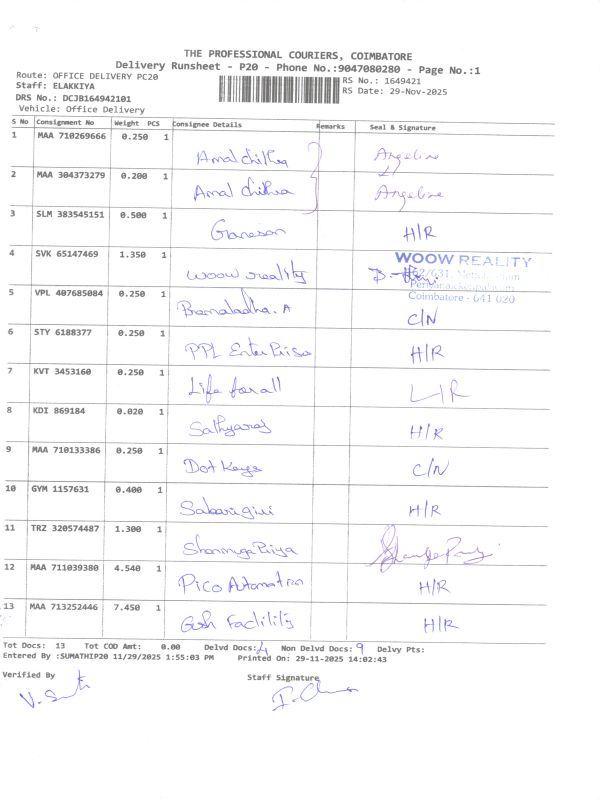 THE PROFESSIONAL COURIERS, COIMBATORE
Delivery Runsheet - P20 - Phone No.:9047080280 - Page No.:1
Route: OFFICE DELIVERY PC20
RS No.: 1649421
Staff: ELAKKIYA
RS Date: 29-Nov-2025
DRS No.: DCJB164942101
Vehicle: Office Delivery
S No Consignment No Weight PCS Consignee Details Remarks Seal & Signature
1 MAA 710269666 0.250 1 Amalchithra Angeline
2 MAA 304373279 0.200 1 Amal chithra Angeline
3 SLM 383545151 0.500 1 Ganesan H/R
4 SVK 65147469 1.350 1 woow reality
WOOW REALITY
Coimbatore - 641 020
5 VPL 407685084 0.250 1 C/N
6 STY 6188377 0.250 1 PPL EnterPrise H/R
7 KVT 3453160 0.250 1 Life for all L/R
8 KDI 869184 0.020 1 Sathyaraj H/R
9 MAA 710133386 0.250 1 Dot Keys C/N
10 GYM 1157631 0.400 1 Sabarigiri H/R
11 TRZ 320574487 1.300 1 ShanmugaPriya
12 MAA 711039380 4.540 1 Pico Automation H/R
13 MAA 713252446 7.450 1 Gosh Faclility H/R
Tot Docs: 13 Tot COD Amt: 0.00 Delvd Docs: 4 Non Delvd Docs: 9 Delvy Pts:
Entered By :SUMATHIP20 11/29/2025 1:55:03 PM Printed On: 29-11-2025 14:02:43
Verified By Staff Signature